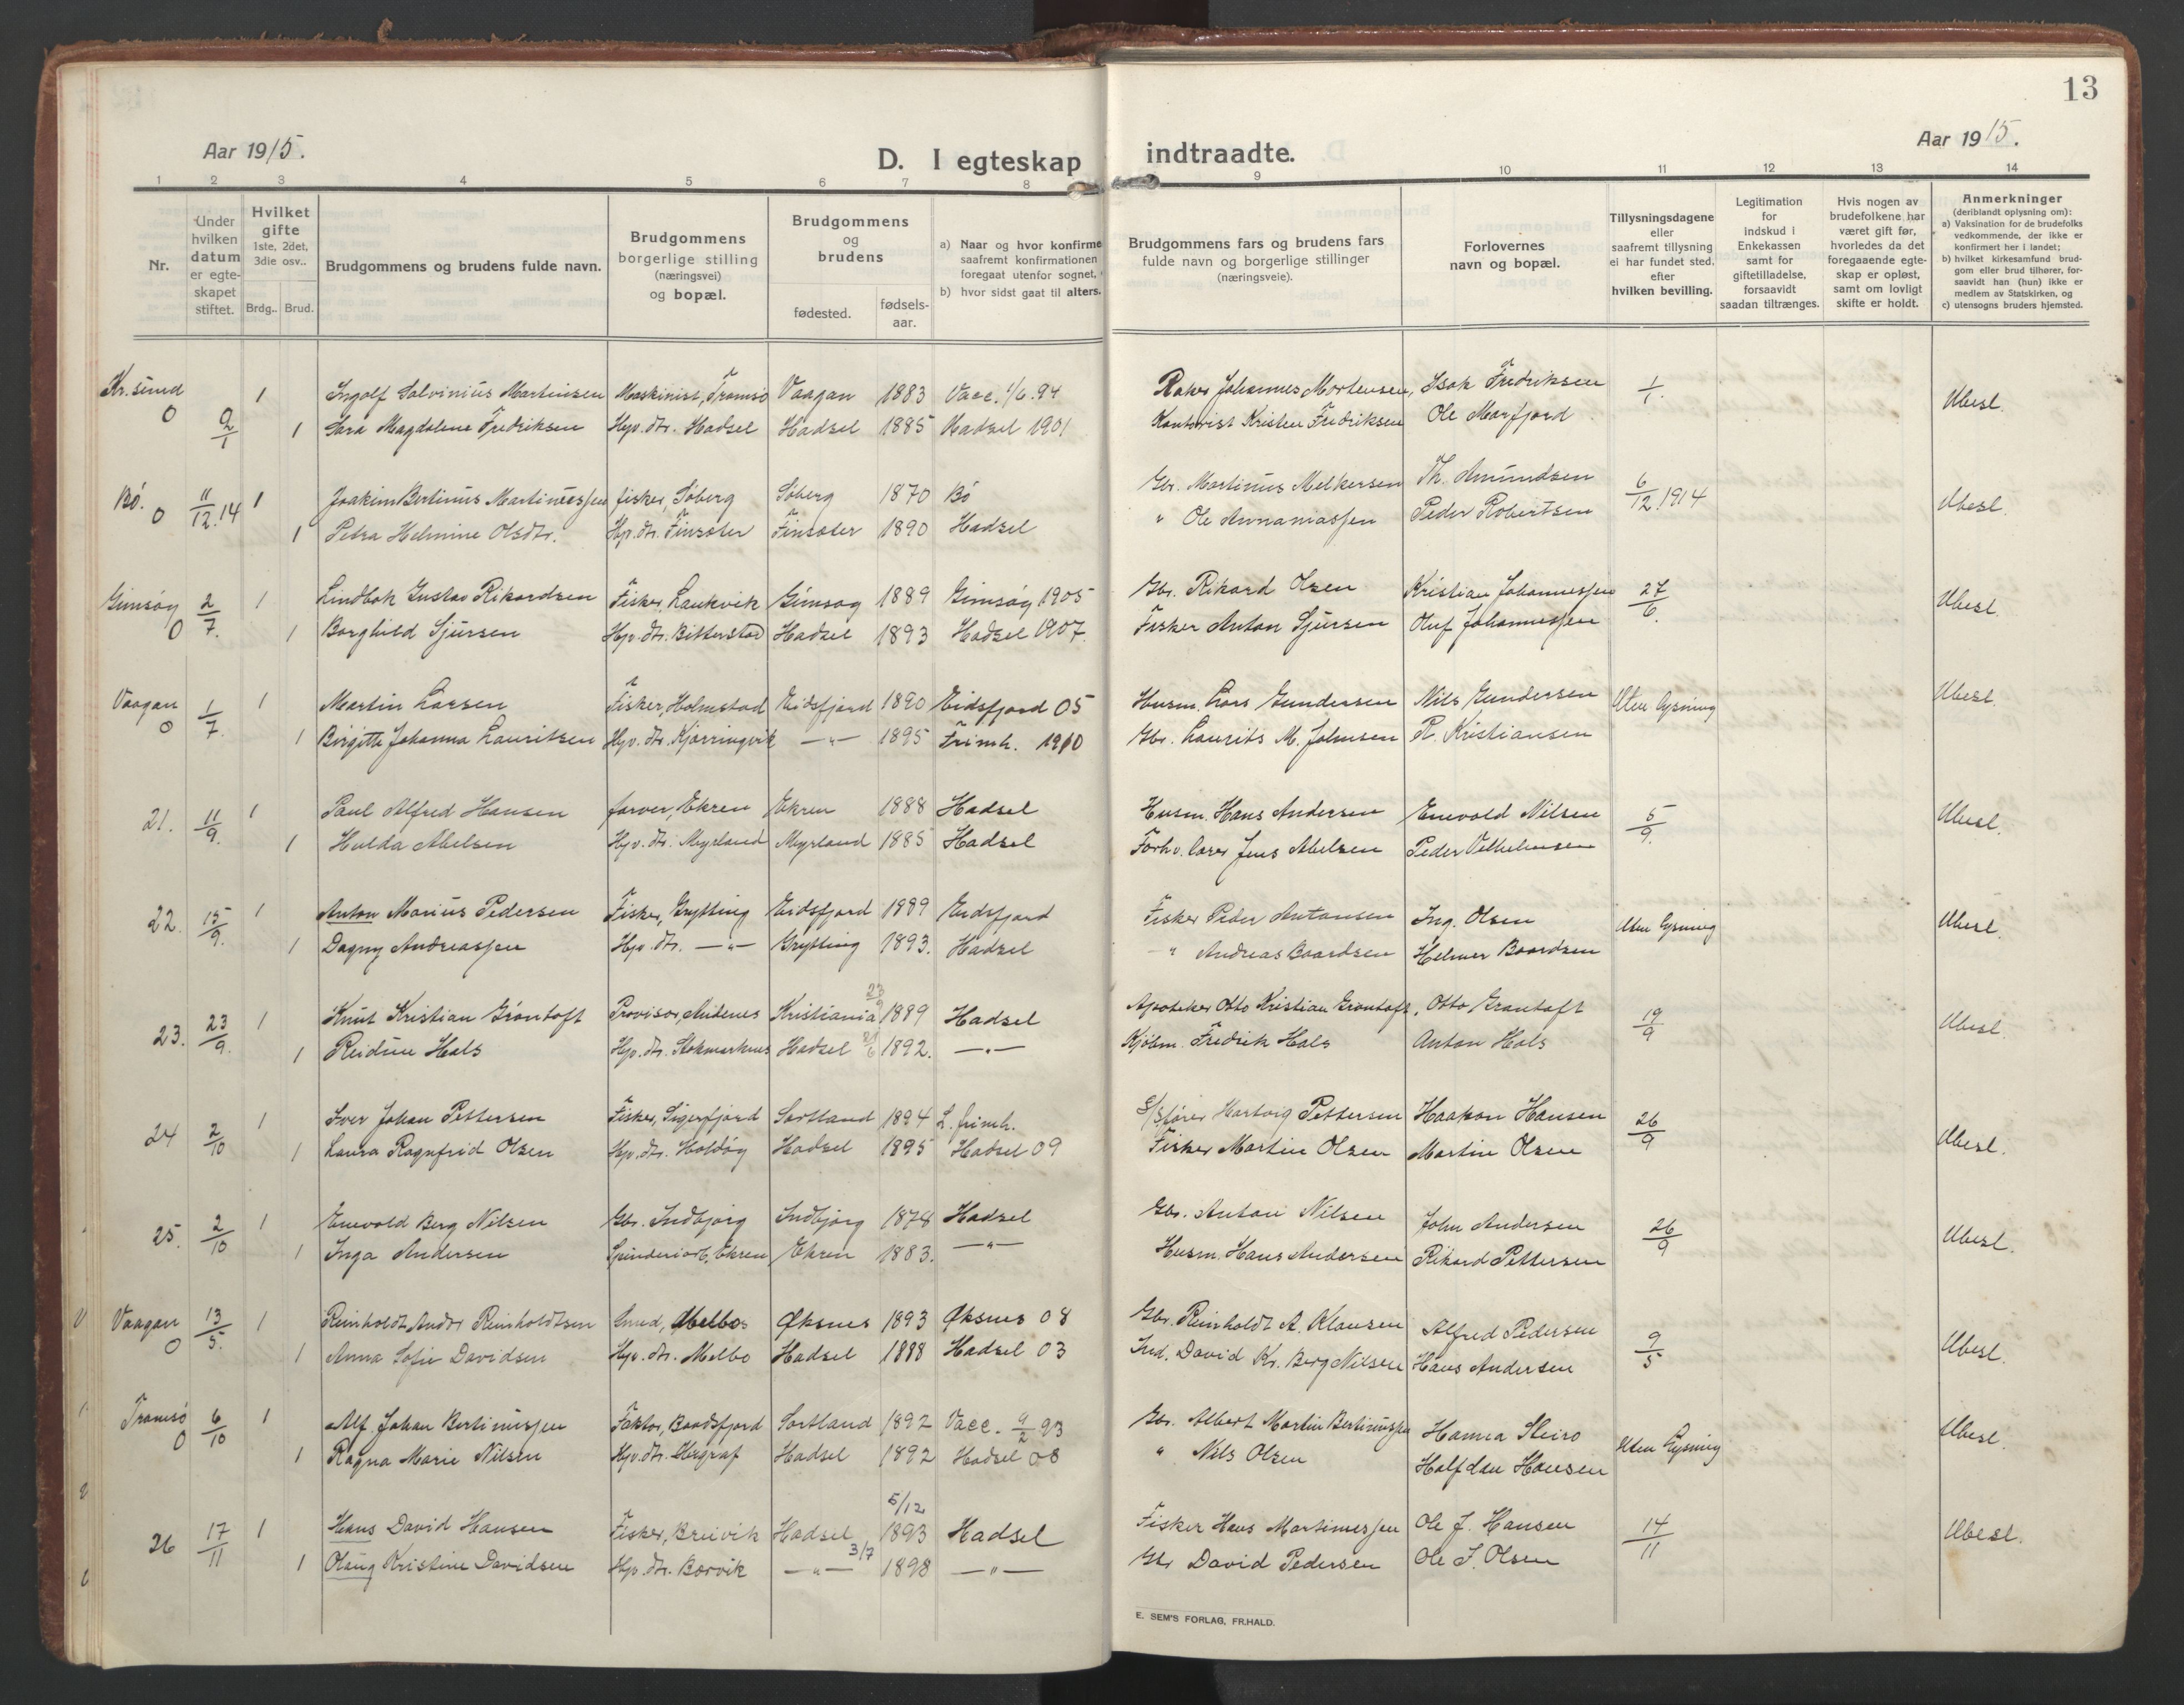 13
Aar 1915.
Aar 1915.
D. I egteskap indtraadte.
1 2 3 4 5 6 7 8 9 10 11 12 13 14
Nr.
Under hvilken datum er egteskapet stiftet.
Hvilket gifte 1ste, 2det, 3die osv..
Brdg.. Brud.
Brudgommens og brudens fulde navn.
Brudgommens borgerlige stilling (næringsvei) og bopæl.
Brudgommens og brudens
fødested. fødsels-aar.
a) Naar og hvor konfirme
saafremt konfirmationen
foregaat utenfor sognet,
b) hvor sidst gaat til alters.
Brudgommens fars og brudens fars fulde navn og borgerlige stillinger (næringsveie).
Forlovernes navn og bopæl.
Tillysningsdagene eller saafremt tillysning ei har fundet sted, efter hvilken bevilling.
Legitimation for indskud i Enkekassen samt for giftetilladelse, forsaavidt saadan tiltrænges.
Hvis nogen av brudefolkene har været gift før, hvorledes da det foregaaende egteskap er opløst, samt om lovligt skifte er holdt.
Anmerkninger (deriblandt oplysning om):
a) Vaksination for de brudefolks vedkommende, der ikke er konfirmert her i landet;
b) hvilket kirkesamfund brudgom eller brud tilhører, forsaavidt han (hun) ikke er medlem av Statskirken, og
c) utensogns bruders hjemsted.
Kr.sund 1 Ingolf Salvinius Martinsen Maskinist, Tromsø Vaagan 1883 Vacc. 1/6.94 Johannes Mortensen, Isak Fredriksen 1/1. Ubesl.
0 2/1 1 Sara Magdalene Fredriksen Hjv. dtr. Hadsel Hadsel 1885 Hadsel 1901 Kontorist Kristen Fredriksen Ole Marfjord
Bø. 0 11/12.14 1 Joakim Bertinus Martinussen fisker, Søberg Søberg 1870 Bø Gbr. Martinus Melkersen Th. Amundsen 6/12.1914 Ubesl.
1 Petra Helmine Olsdtr. Hjv. dtr. Finsæter Finsæter 1890 Hadsel " Ole Annaniassen Peder Robertsen
Gimsøy 0 2/7. 1 Lindbok Gustav Rikardsen Fisker, Laukvik Gimsøy 1889 Gimsøy 1905 Gbr. Rikard Olsen Kristian Johannessen 27/6. Ubesl.
1 Borghild Sjursen Hjv. dtr. Bitterstad Hadsel 1893 Hadsel 1907. Fisker Anton Sjursen Oluf Johannessen
Vaagan 0 1/7. 1 Martin Larsen Fisker, Holmstad Eidsfjord 1890 Eidsfjord 05 Husm. Lars Gundersen Nils Gundersen Uten lysning Ubesl.
1 Birgitte Johanna Lauritsen Hjv. dtr. Kjørringvik —"— 1895 Frimh. 1910 Gbr. Laurits M. Johnsen R. Kristiansen
21. 11/9. 1 Paul Alfred Hansen farver, Ekren Ekren 1888 Hadsel Husm. Hans Andersen Enevold Nilsen 5/9. Ubesl.
1 Hulda Abelsen Hjv. dtr. Myrland Myrland 1885 Hadsel Forhv. Jens Abelsen Peder Vilhelmsen
22. 15/9. 1 Anton Marius Pedersen Fisker, Grytting Eidsfjord 1889 Eidsfjord Fisker Peder Antonsen Ing. Olsen Uten lysning Ubesl.
1 Dagny Andreassen Hjv. dtr. —"— Grytting 1893. Hadsel —" Andreas Baardsen Helmer Baardsen
23. 23/9. 1 Knut Kristian Grøntoft Provisor, Andenes Kristiania 1889 Hadsel Apoteker Otto Kristian Grøntoft, Otto Grøntoft 19/9 Ubesl.
1 Reidun Hals Hjv. dtr. Stokmarknes Hadsel 1892. —"— Kjøbm. Fredrik Hals Anton Hals
24 2/10 1 Iver Johan Pettersen Fisker, Sigerfjord Sortland 1894 L. frimh. S/Sfører Hartvig Pettersen Haakon Hansen 26/9 Ubesl.
1 Laura Ragnfrid Olsen Hjv. dtr. Holdøy Hadsel 1895 Hadsel 09 Fisker Martin Olsen Martin Olsen
25. 2/10 1 Enevold Berg Nilsen Gbr. Indbjørg Indbjørg 1878 Hadsel Gbr. Anton Nilsen John Andersen 26/9 Ubesl.
1 Inga Andersen Spinderiarb, Ekren Ekren 1883. —"— Husm. Hans Andersen Rikard Pettersen
Vaagan 0 13/5. 1 Reinholdt Andr Reinholdtsen Smed, Melbo Øksnes 1893 Øksnes 08 Gbr. Reinholdt A. Klausen Alfred Pedersen 9/5 Ubesl.
1 Anna Sofie Davidsen Hjv. dtr. Melbo Hadsel 1888 Hadsel 03 Ind. David Kr. Berg Nilsen Hans Andersen
Tromsø 0 6/10 1 Alf. Johan Bertinussen Faktor, Baadsfjord Sortland 1892 Vacc. 9/2 93 Gbr. Albert Martin Bertinussen Hanna Steiro Uten lysning Ubesl.
1 Ragna Marie Nilsen Hjv. dtr. Hadsel 1892 Hadsel 08 " Nils Olsen Halfdan Hansen
5/12
26 17/11 1 Hans David Hansen Fisker, Breivik Hadsel 1893 Hadsel Fisker Hans Martinussen Ole J. Hansen 14/11 Ubesl.
1 Olaug Kristine Davidsen Hjv. dtr. Børvik —"— 3/7 1898 —"— Gbr David Pedersen Ole J. Olsen
E. SEM'S FORLAG, FR.HALD.